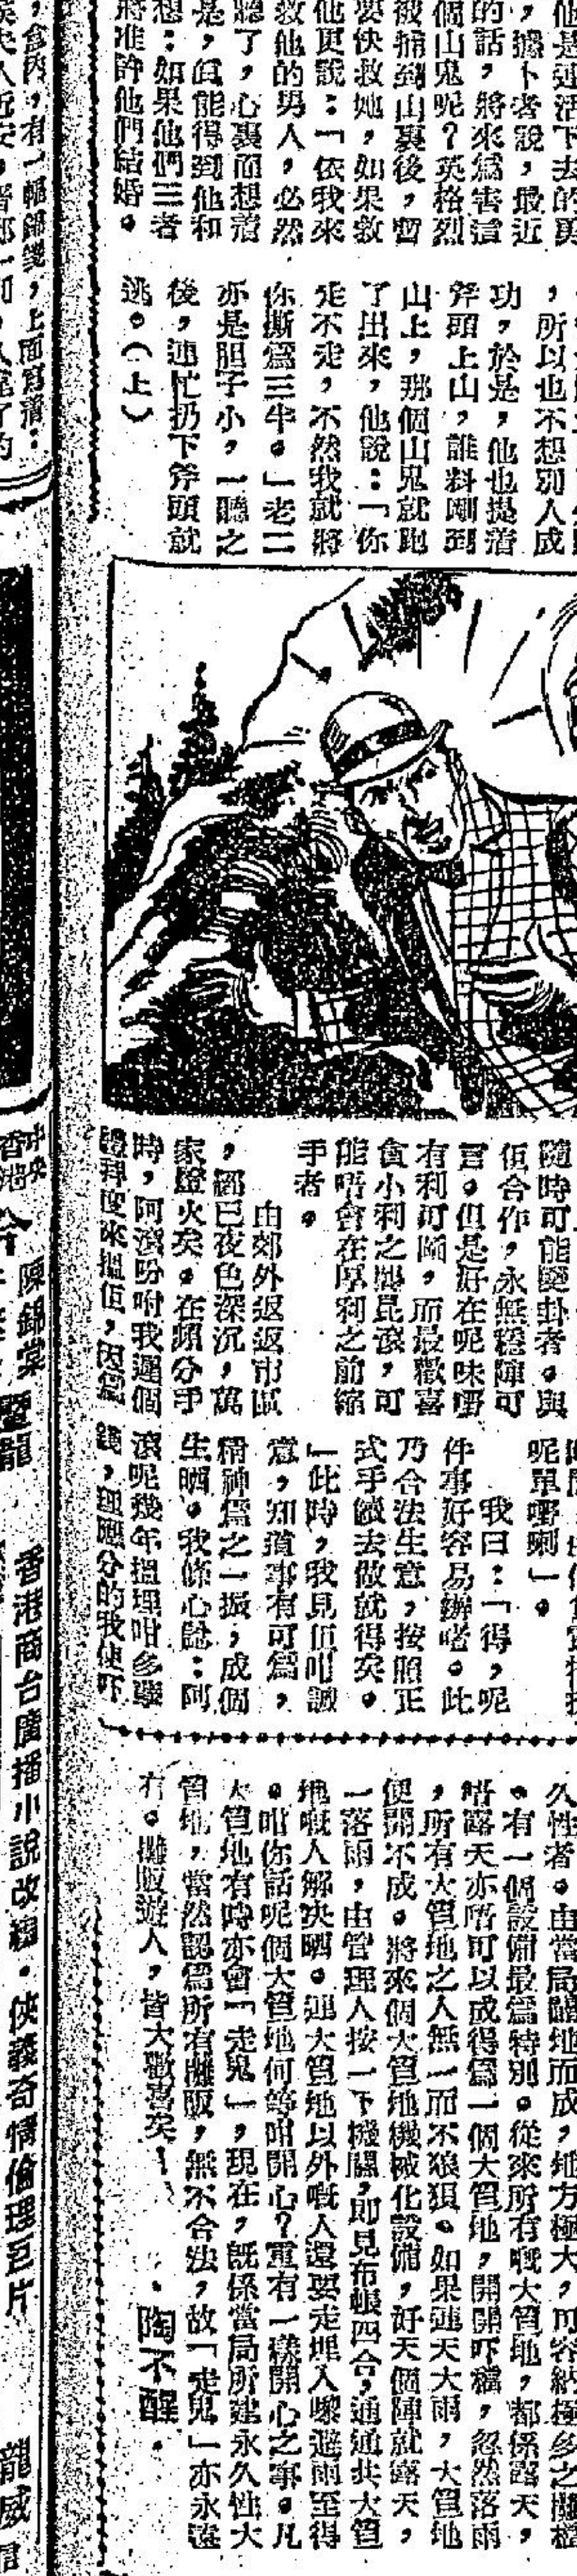 他是連活下去的勇
，據卜者說，最近
的話，將來爲害這
個山鬼呢？英格烈
被捕到山裏後，曾
要快救她，如果救
他更說：「依我來
救他的男人，必然
聽了，心裏面想着
是，眞能得到他和
想：如果他們三者
將准許他們結婚。
，所以也不想別人成
功，於是，他也提着
斧頭上山，誰料剛到
山上，那個山鬼就跑
了出來，他說：「你
走不走，不然我就將
你撕爲三牛。」老二
亦是胆子小，一聽之
後，連忙扔下斧頭就
逃。（上）
隨時可能變卦者。與
佢合作，永無穩陣可
言。但是好在呢味嘢
有利可圖，而最歡喜
貪小利之撈昆滾，可
能唔會在厚利之前縮
手者。
由郊外返返市區
，經已夜色深沉，萬
家燈火矣。在瀕分手
時，阿濱吩咐我遲個
禮拜度來搵佢，因爲
呢單嘢喇」。
我曰：「得，呢
件事好容易辦啫。此
乃合法生意，按照正
式手續去做就得矣。
」此時，我見佢咁識
意，知道事有可爲，
精神爲之一振，成個
生晒。我條心諗：阿
濱呢幾年搵埋咁多孽
錢，理應分的我使吓
久性者。由當局闢地而成，地方極大，可容納極多之攤檔
。有一個設備最爲特別。從來所有嘅大笪地，都係露天，
唔露天亦唔可以成得爲一個大笪地，開開吓檔，忽然落雨
，所有大笪地之人無一而不狼狽。如果連天大雨，大笪地
便開不成。將來個大笪地機械化設備，好天個陣就露天，
一落雨，由管理人按一下機關，即見布帳四合，通通共大笪
地嘅人解決晒。連大笪地以外嘅人還要走埋入嚟避雨至得
。咁你話呢個大笪地何等咁開心？重有一樣開心之事。凡
大笪地有時亦會「走鬼」，現在，既係當局所建永久性大
笪地，當然認爲所有攤販，無不合法，故「走鬼」亦永遠
冇。攤販遊人，皆大歡喜矣！
·陶不醒·
，盒內，有一幅錦箋，上面寫着：
陳錦棠
香港商台廣播小說改編·俠義奇情倫理巨片
龍威